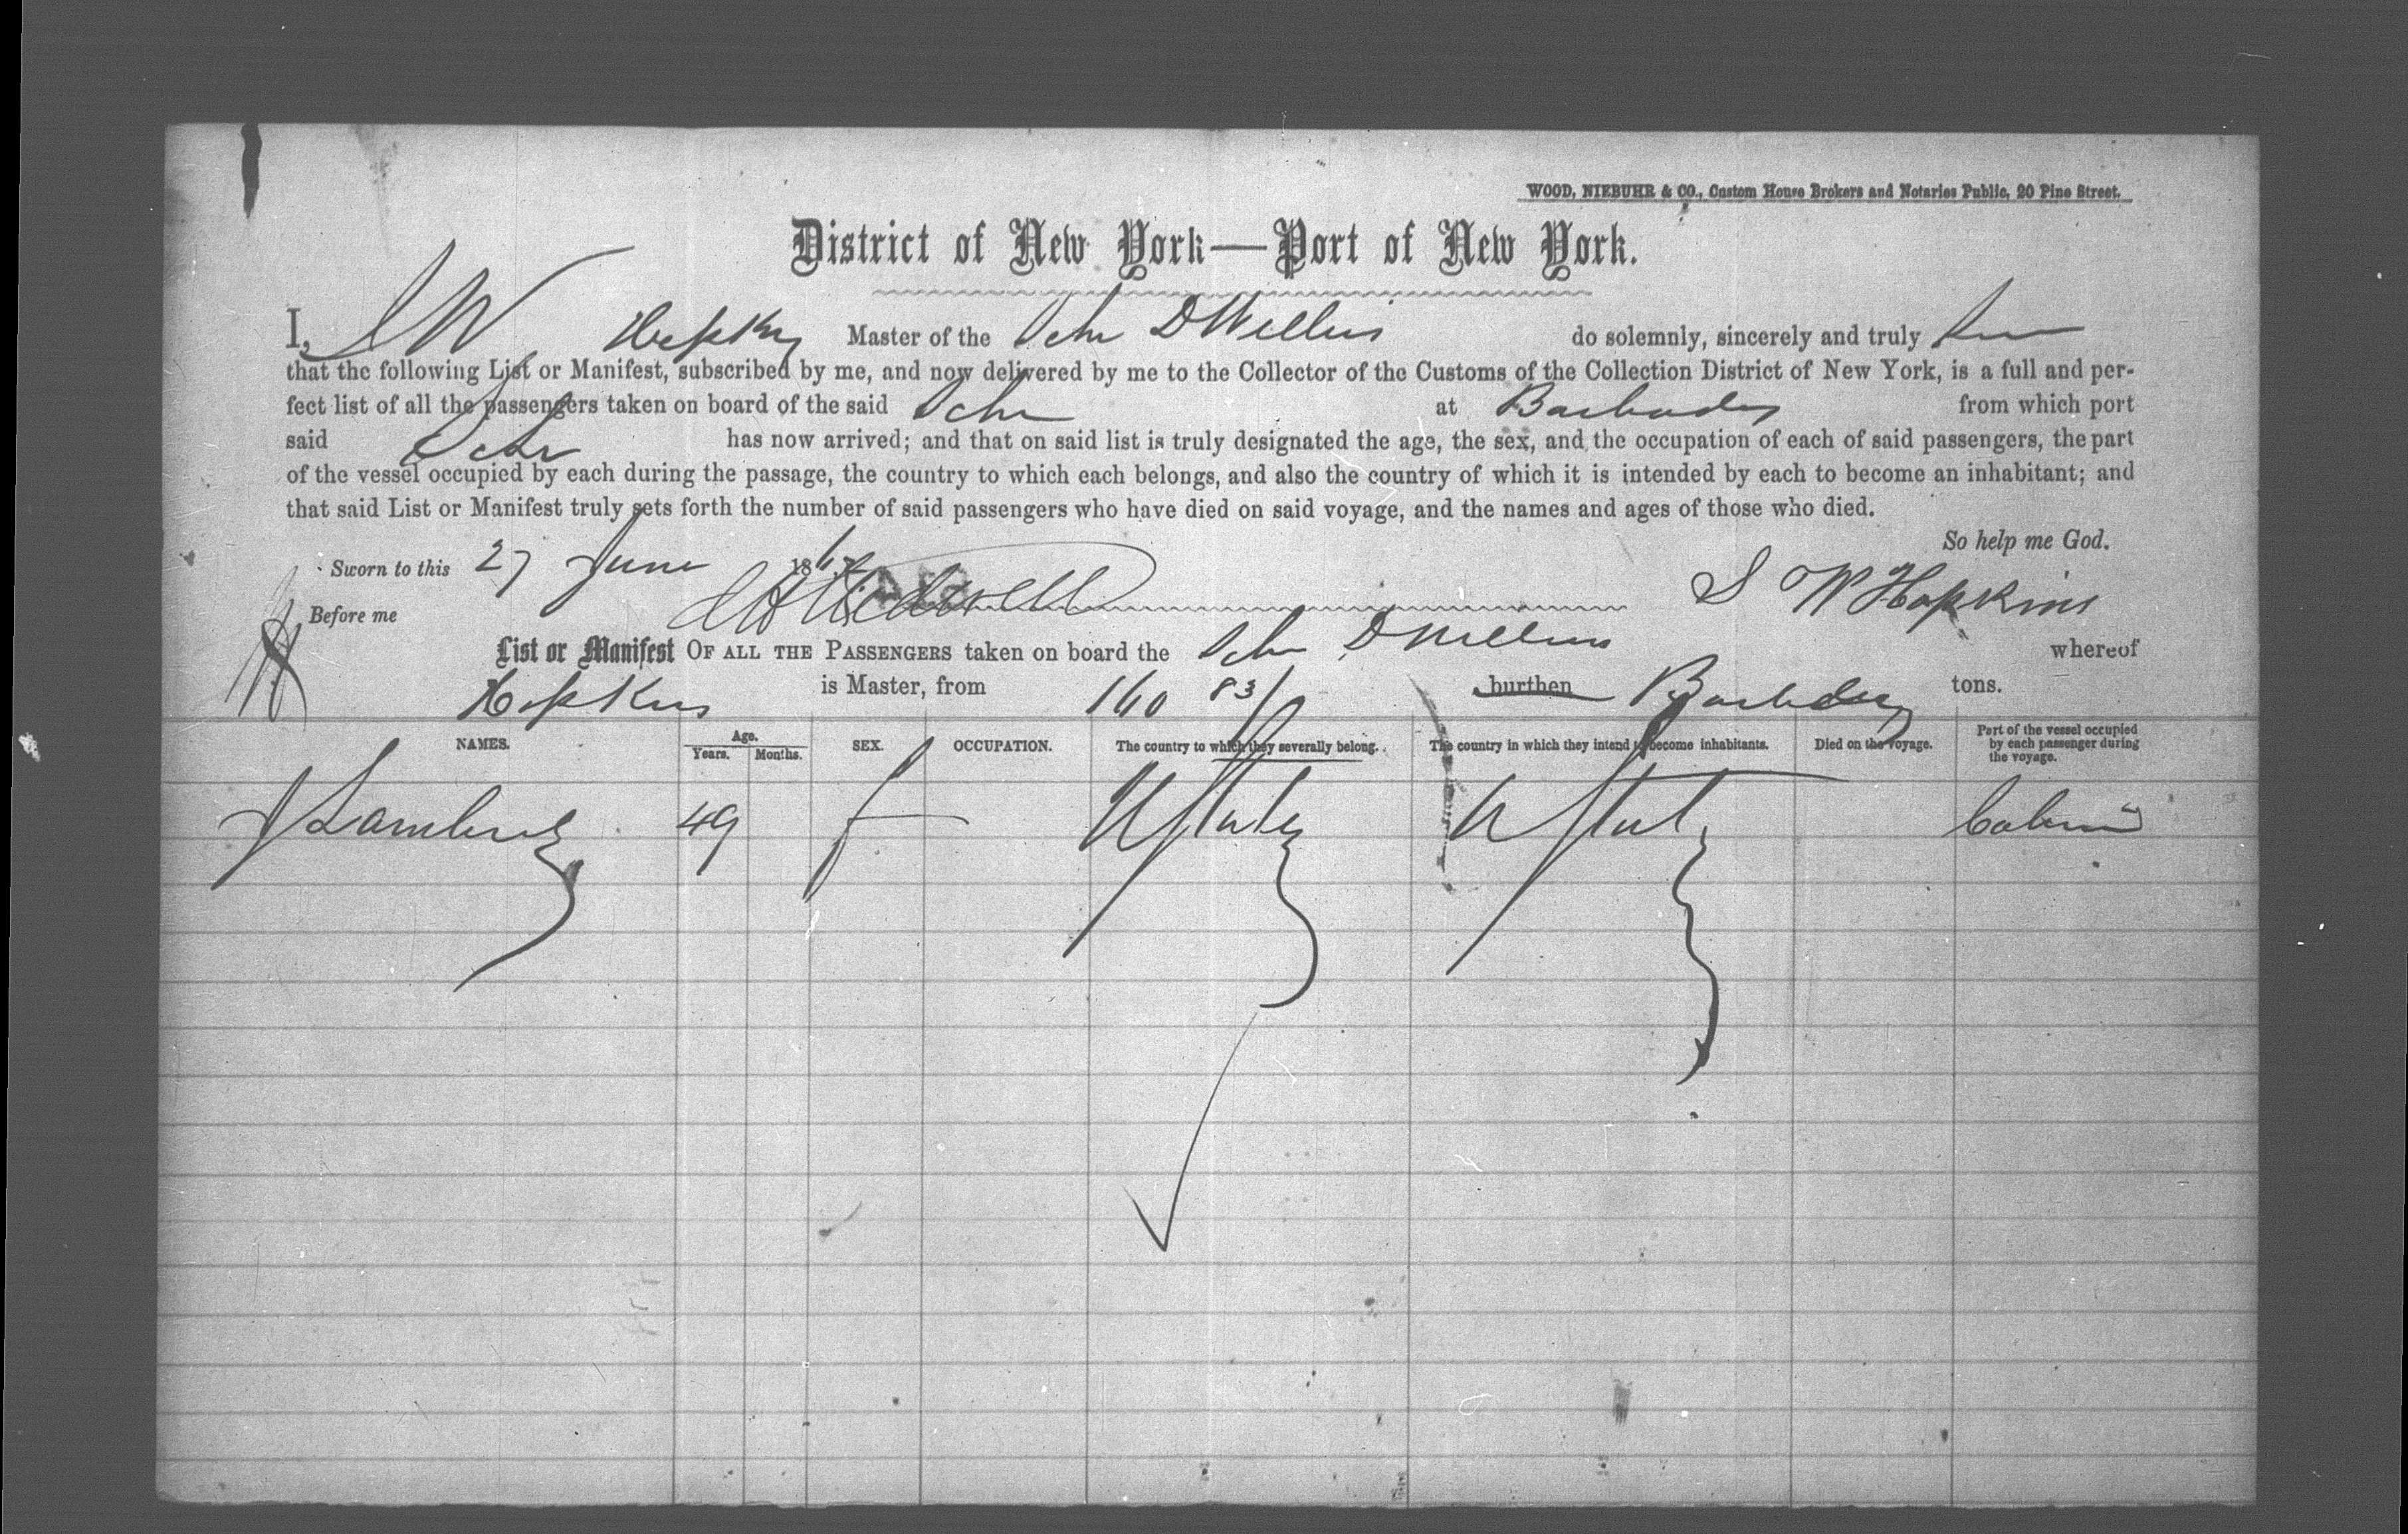 WOOD, NIEBUHR & CO., Custom House Brokers and Notaries Public, 20 Pine Street.
District of New York—Port of New York.
I, S W Hopkins Master of the Schr D Willis do solemnly, sincerely and truly
that the following List or Manifest, subscribed by me, and now delivered by me to the Collector of the Customs of the Collection District of New York, is a full and per-
fect list of all the passengers taken on board of the said Schr at Barbados from which port
said Schr has now arrived; and that on said list is truly designated the age, the sex, and the occupation of each of said passengers, the part
of the vessel occupied by each during the passage, the country to which each belongs, and also the country of which it is intended by each to become an inhabitant; and
that said List or Manifest truly sets forth the number of said passengers who have died on said voyage, and the names and ages of those who died.
So help me God.
Sworn to this 27 June 186
S W Hopkins
Before me
List or Manifest OF ALL THE PASSENGERS taken on board the Schr D Willis whereof
Hopkins is Master, from 160 83/ burthen Barbados tons.
NAMES. Age. Years. Months. SEX. OCCUPATION. The country to which they severally belong. The country in which they intend to become inhabitants. Died on the voyage. Part of the vessel occupied by each passenger during the voyage.
J 49 f U States U States Cabin